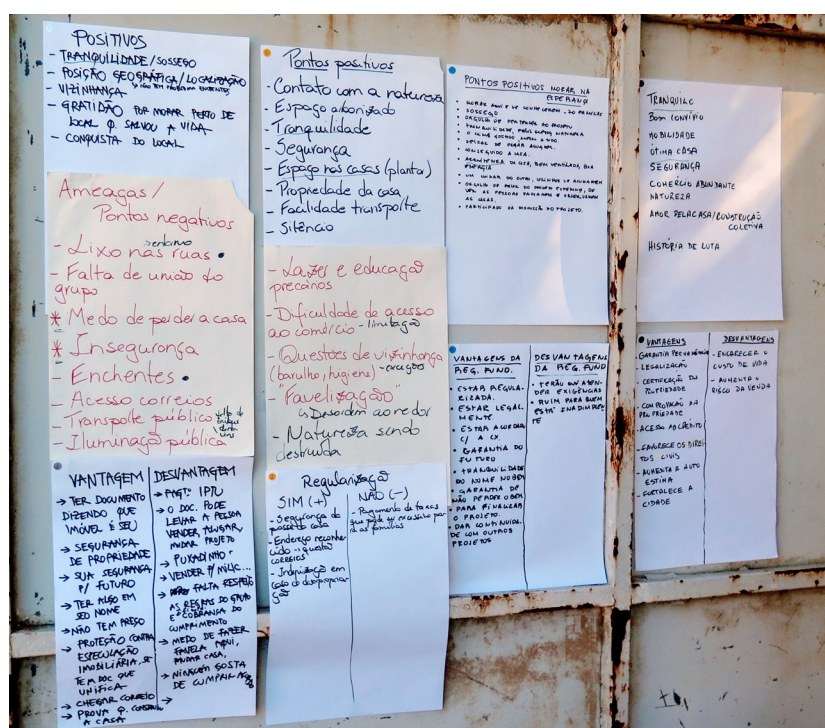 POSITIVOS
- TRANQUILIDADE/SOSSEGO
- POSIÇÃO GEOGRÁFICA/LOCALIZAÇÃO
- VIZINHANÇA
- GRATIDÃO POR MORAR PERTO DE
LOCAL Q. SALVOU A VIDA
- CONQUISTA DO LOCAL
Ameaças/
Pontos negativos
- Lixo nas ruas • entorno
- Falta de união do
grupo
* Medo de perder a casa
* Insegurança
- Enchentes •
- Acesso correios
- Transpote público
- Iluminação pública
VANTAGEM
→ TER DOCUMENTO
DIZENDO QUE
IMÓVEL É SEU
→ SEGURANÇA
DE PROPRIEDADE
→ SUA SEGURANÇA
P/ FUTURO
→ TER ALGO EM
SEU NOME
→ NÃO TEM PREÇO
→ PROTEÇÃO CONTRA
ESPECULAÇÃO
IMOBILIÁRIA, SE
TEM DOC QUE
UNIFICA
→ CHEGAR CORREIO
→ PROVA Q.
A CASA
DESVANTAGEM
→ PAGTº IPTU
→ O DOC. PODE
LEVAR A PESSOA
VENDER, ALUGAR,
MUDAR PROJETO
→ PUXADINHO
→ VENDER P/ MILIC...
→ FALTA RESPEITO
AS REGRAS DO GRUPO
E COBRANÇA DO
CUMPRIMENTO
→ MEDO DE FAZER
FAVELA AQUI,
MUDAR CASA,
→ NINGUÉM GOSTA
DE CUMPRIR
Pontos positivos
- Contato com a natureza
- Espaço arborizado
- Tranquilidade
- Segurança
- Espaço nas casas (planta)
- Propriedade da casa
- Facilidade transporte
- Silêncio
- Lazer e educação
precários
- Dificuldade de acesso
ao comércio - limitação
- Questões de vizinhança
(barulho, higiene) - exceções
- "Favelização"
↳ Desordem ao redor
- Natureza sendo
destruída
Regularização
SIM (+)
- Segurança de
posse da casa
- Endereço reconhe-
cido → questão
CORREIOS
- Indenização em
caso de desapropria-
ção
NÃO (-)
- Pagamento de taxas
que pode ser excessivo par
a as famílias
PONTOS POSITIVOS MORAR NA
ESPERANÇA
• SOSSEGO
• ORGULHO DE PERTENCER AO PROJETO
• TRANQUILIDADE,
• DEIXAR DE PAGAR ALUGUEL.
CONSEGUIDO A CASA.
BEM VENTILADA, BOA
ENERGIA
• UM CUIDAR DO OUTRO, VIZINHOS SE AJUDAREM
VER AS PESSOAS PASSAREM E OBSERVAREM
AS CASAS.
VANTAGENS DA
REG. FUND.
• ESTAR REGULA-
RIZADA.
• ESTAR LEGAL-
MENTE
• ESTAR ACORDADA
C/ A CX.
• GARANTIA DO
FUTURO
• TRANQUILIDADE
DO NOME NO BEM
• GARANTIA DE
NÃO PERDER O BEM
• PARA FINALIZAR
O PROJETO.
• DAR CONTINUIDA-
DE COM OUTROS
PROJETOS
DESVANTAGENS
DA REG. FUND
• TERÃO QUE ATEN-
DER EXIGÊNCIAS
• RUIM PARA QUEM
ESTÁ INADIMPLEN-
TE
TRANQUILO
BOM CONVÍVIO
MOBILIDADE
ÓTIMA CASA
SEGURANÇA
COMÉRCIO ABUNDANTE
NATUREZA
AMOR PELA CASA/CONSTRUÇÃO
COLETIVA
HISTÓRIA DE LUTA
VANTAGENS
- LEGALIZAÇÃO
- CERTIFICAÇÃO DA
PROPRIEDADE
- COMPROVAÇÃO DA
PROPRIEDADE
- ACESSO AO CRÉDITO
- FAVORECE OS DIREI
TOS CIVIS
- AUMENTA A AUTO
ESTIMA
- FORTALECE A
CIDADE
DESVANTAGENS
- ENCARECER O
CUSTO DE VIDA
- AUMENTA O
RISCO DA VENDA